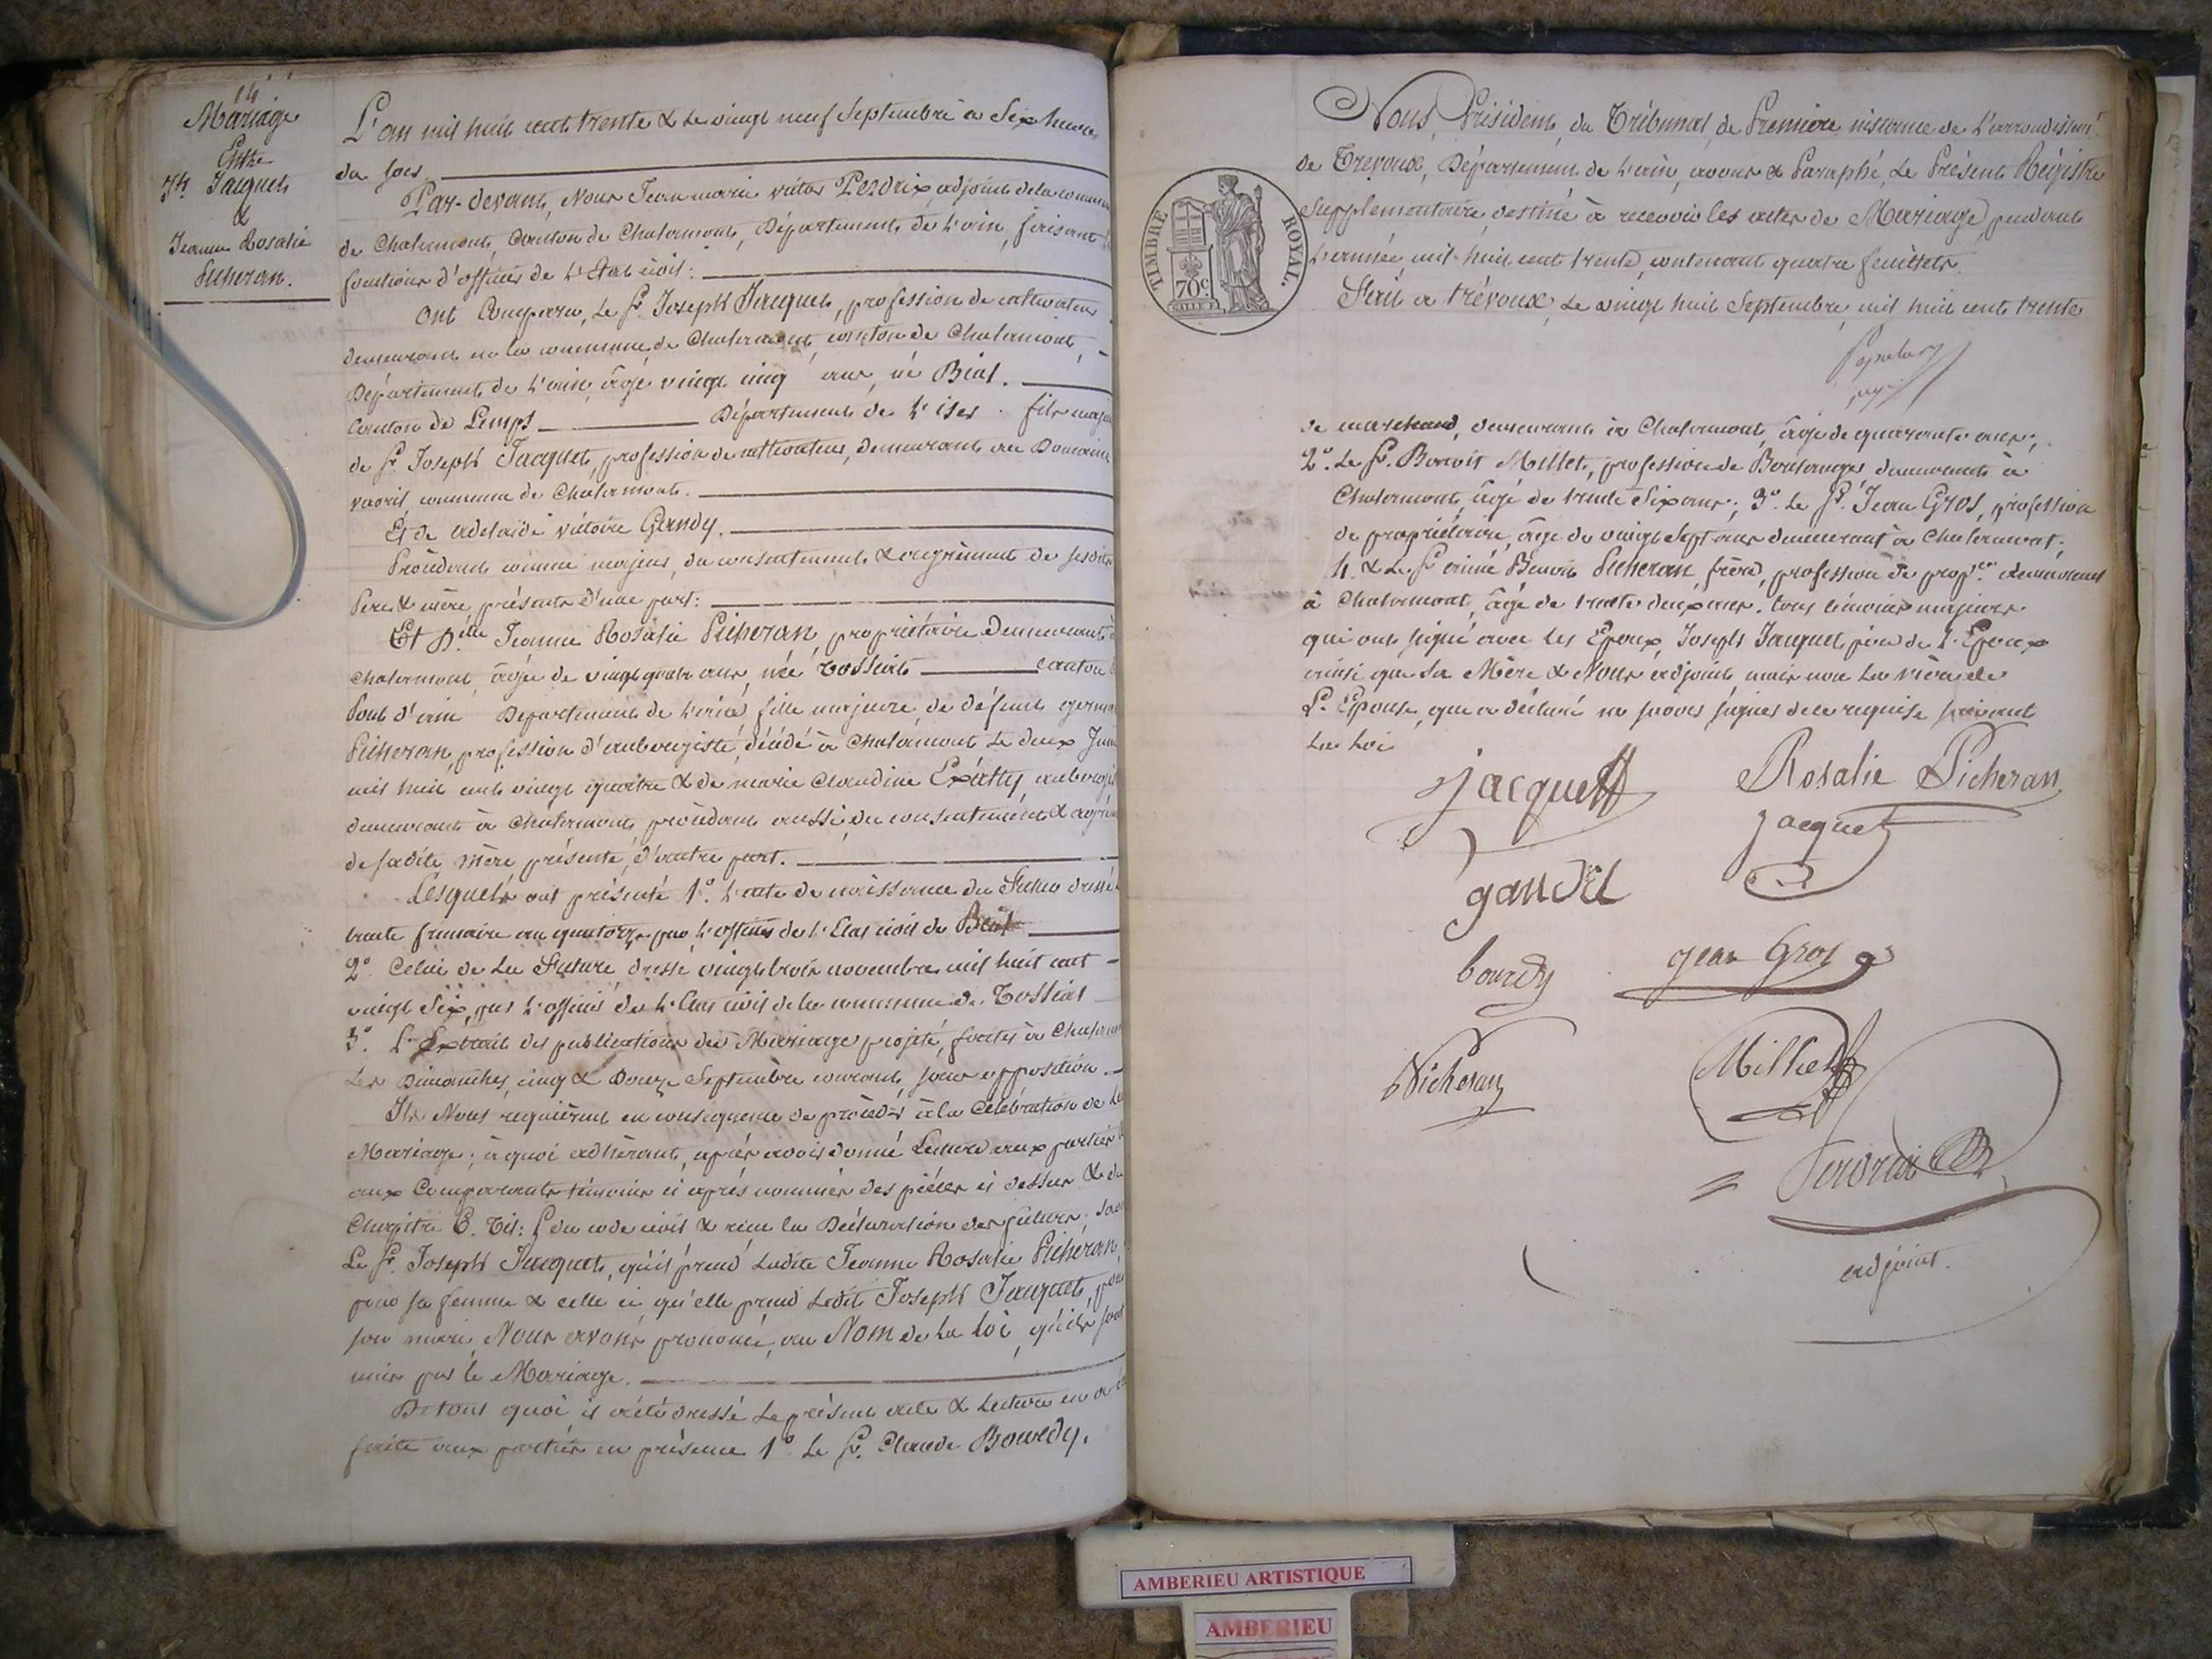 14
Mariage
Entre
Jh. Jacquet
&
Jeanne Rosalie
Picheran.
L'an mil huit cent trente & le vingt neuf Septembre à Six heures
du soir
Par-devant, Nous Jean marie victor Perdrix, adjoint de la commune
de Chalamont, Canton de Chalamont, Département de L'ain, faisant
fonctions d'officier de L'Etat civil:
Ont Comparu, Le Sr. Joseph Jacquet, profession de cultivateur
demeurant en la commune de Chalamont, canton de Chalamont,
Département de L'ain, âgé vingt cinq ans, né Biol.
Canton de Lemps Département de L'iser. fils majeur
de Sr. Joseph Jacquet, profession de cultivateur, demeurant au Domaine
commune de Chalamont.
Et de adelaïde victoire Gandy.
Procédant comme majeur, du consentement & agrément de sesdits
Pere & mère, présents d'une part:
Et Dlle Jeanne Rosalie Picheran, propriétaire Demeurant à
chalamont, âgée de vingt quatre ans, née Tossiat canton
Pont d'ain Département de L'ain, fille majeure, de défunt
Picheran, profession d'aubergiste, décédé à Chalamont Le deux
mil huit cent vingt quatre & de marie Claudine aubergiste
demeurant à Chalamont, procédant aussi du consentement & agrément
de sadite mère présente, d'autre part.
Lesquels ont présenté 1º. L'acte de naissance du Futur dressé
trente frimaire an quatorze par L'officier de L'Etat civil de Biol
2º. Celui de La Future dressé vingt trois novembre mil huit cent
vingt Six, par L'officier de L'Etat civil de la commune de Tossiat
3º. L'Extrait des publications du Mariage projeté, faites à Chalamont
Les Dimanches, cinq & Douze Septembre courant, sans opposition.
Ils Nous requièrent en conséquence de procéder à la Célébration de Leur
Mariage; à quoi adhérant, après avoir donné Lecture aux parties
aux Comparants témoins ci après nommés des pièces ci dessus & du
Chapitre 6. Tit: 5 du code civil & reçu la Déclaration des futurs; savoir
Le Sr. Joseph Jacquet, qu'il prend Ladite Jeanne Rosalie Picheran,
pour sa femme & celle ci qu'elle prend Ledit Joseph Jacquet, pour
son mari, Nous avons prononcé, au Nom de La Loi, qu'ils sont
unis par le Mariage.
De tout quoi il a été dressé Le présent acte & Lecture en a été
faite aux parties en présence 1º Le Sr. Claude Bourdy.
Nous, Président, du Tribunal, de Première instance de L'arrondissemt.
de Trevoux, Département de L'ain, avons & Paraphé, Le Présent Régistre
Supplémentaire, destiné à recevoir les actes de Mariage, pendant
L'année, mil-huit cent trente, contenant quatre feuillets.
Fait à trévoux, Le vingt huit Septembre, mil huit cent trente
TIMBRE ROYAL.
70c.
de marchand, demeurant à Chalamont, âgé de quarante ans;
2º. Le Sr. Benoit Millet, profession de Boulanger demeurant à
Chalamont, âgé de trente Six ans; 3º Le Sr. Jean Gros, profession
de propriétaire, âgé de vingt Sept ans demeurant à Chalamont;
4. & Le Sr aimé Benoit Picheran, frère, profession de propre. demeurant
à Chalamont, âgé de trente deux ans. tous témoins majeurs
qui ont signé avec les Epoux, Joseph Jacquet, père de L'Epoux
ainsi que Sa Mère & Nous adjoint mais non La mère de
L'Epouse, qui a déclaré ne savoir signer de ce requise suivant
La Loi
Jacquet Rosalie Picheran
Jacquet
gandil
bourdy Jean Gros
Picheran Milliet
Perdrix
adjoint.
AMBERIEU ARTISTIQUE
AMBERIEU